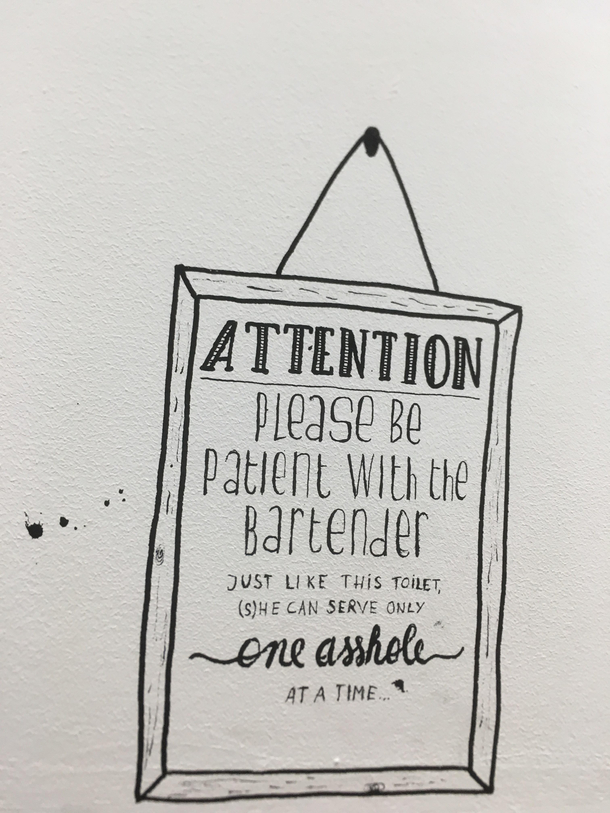 ATTENTION
PLEASE BE
Patient With the
Bartender
JUST LIKE THIS TOILET,
(S)HE CAN SERVE ONLY
one asshole
AT A TIME...